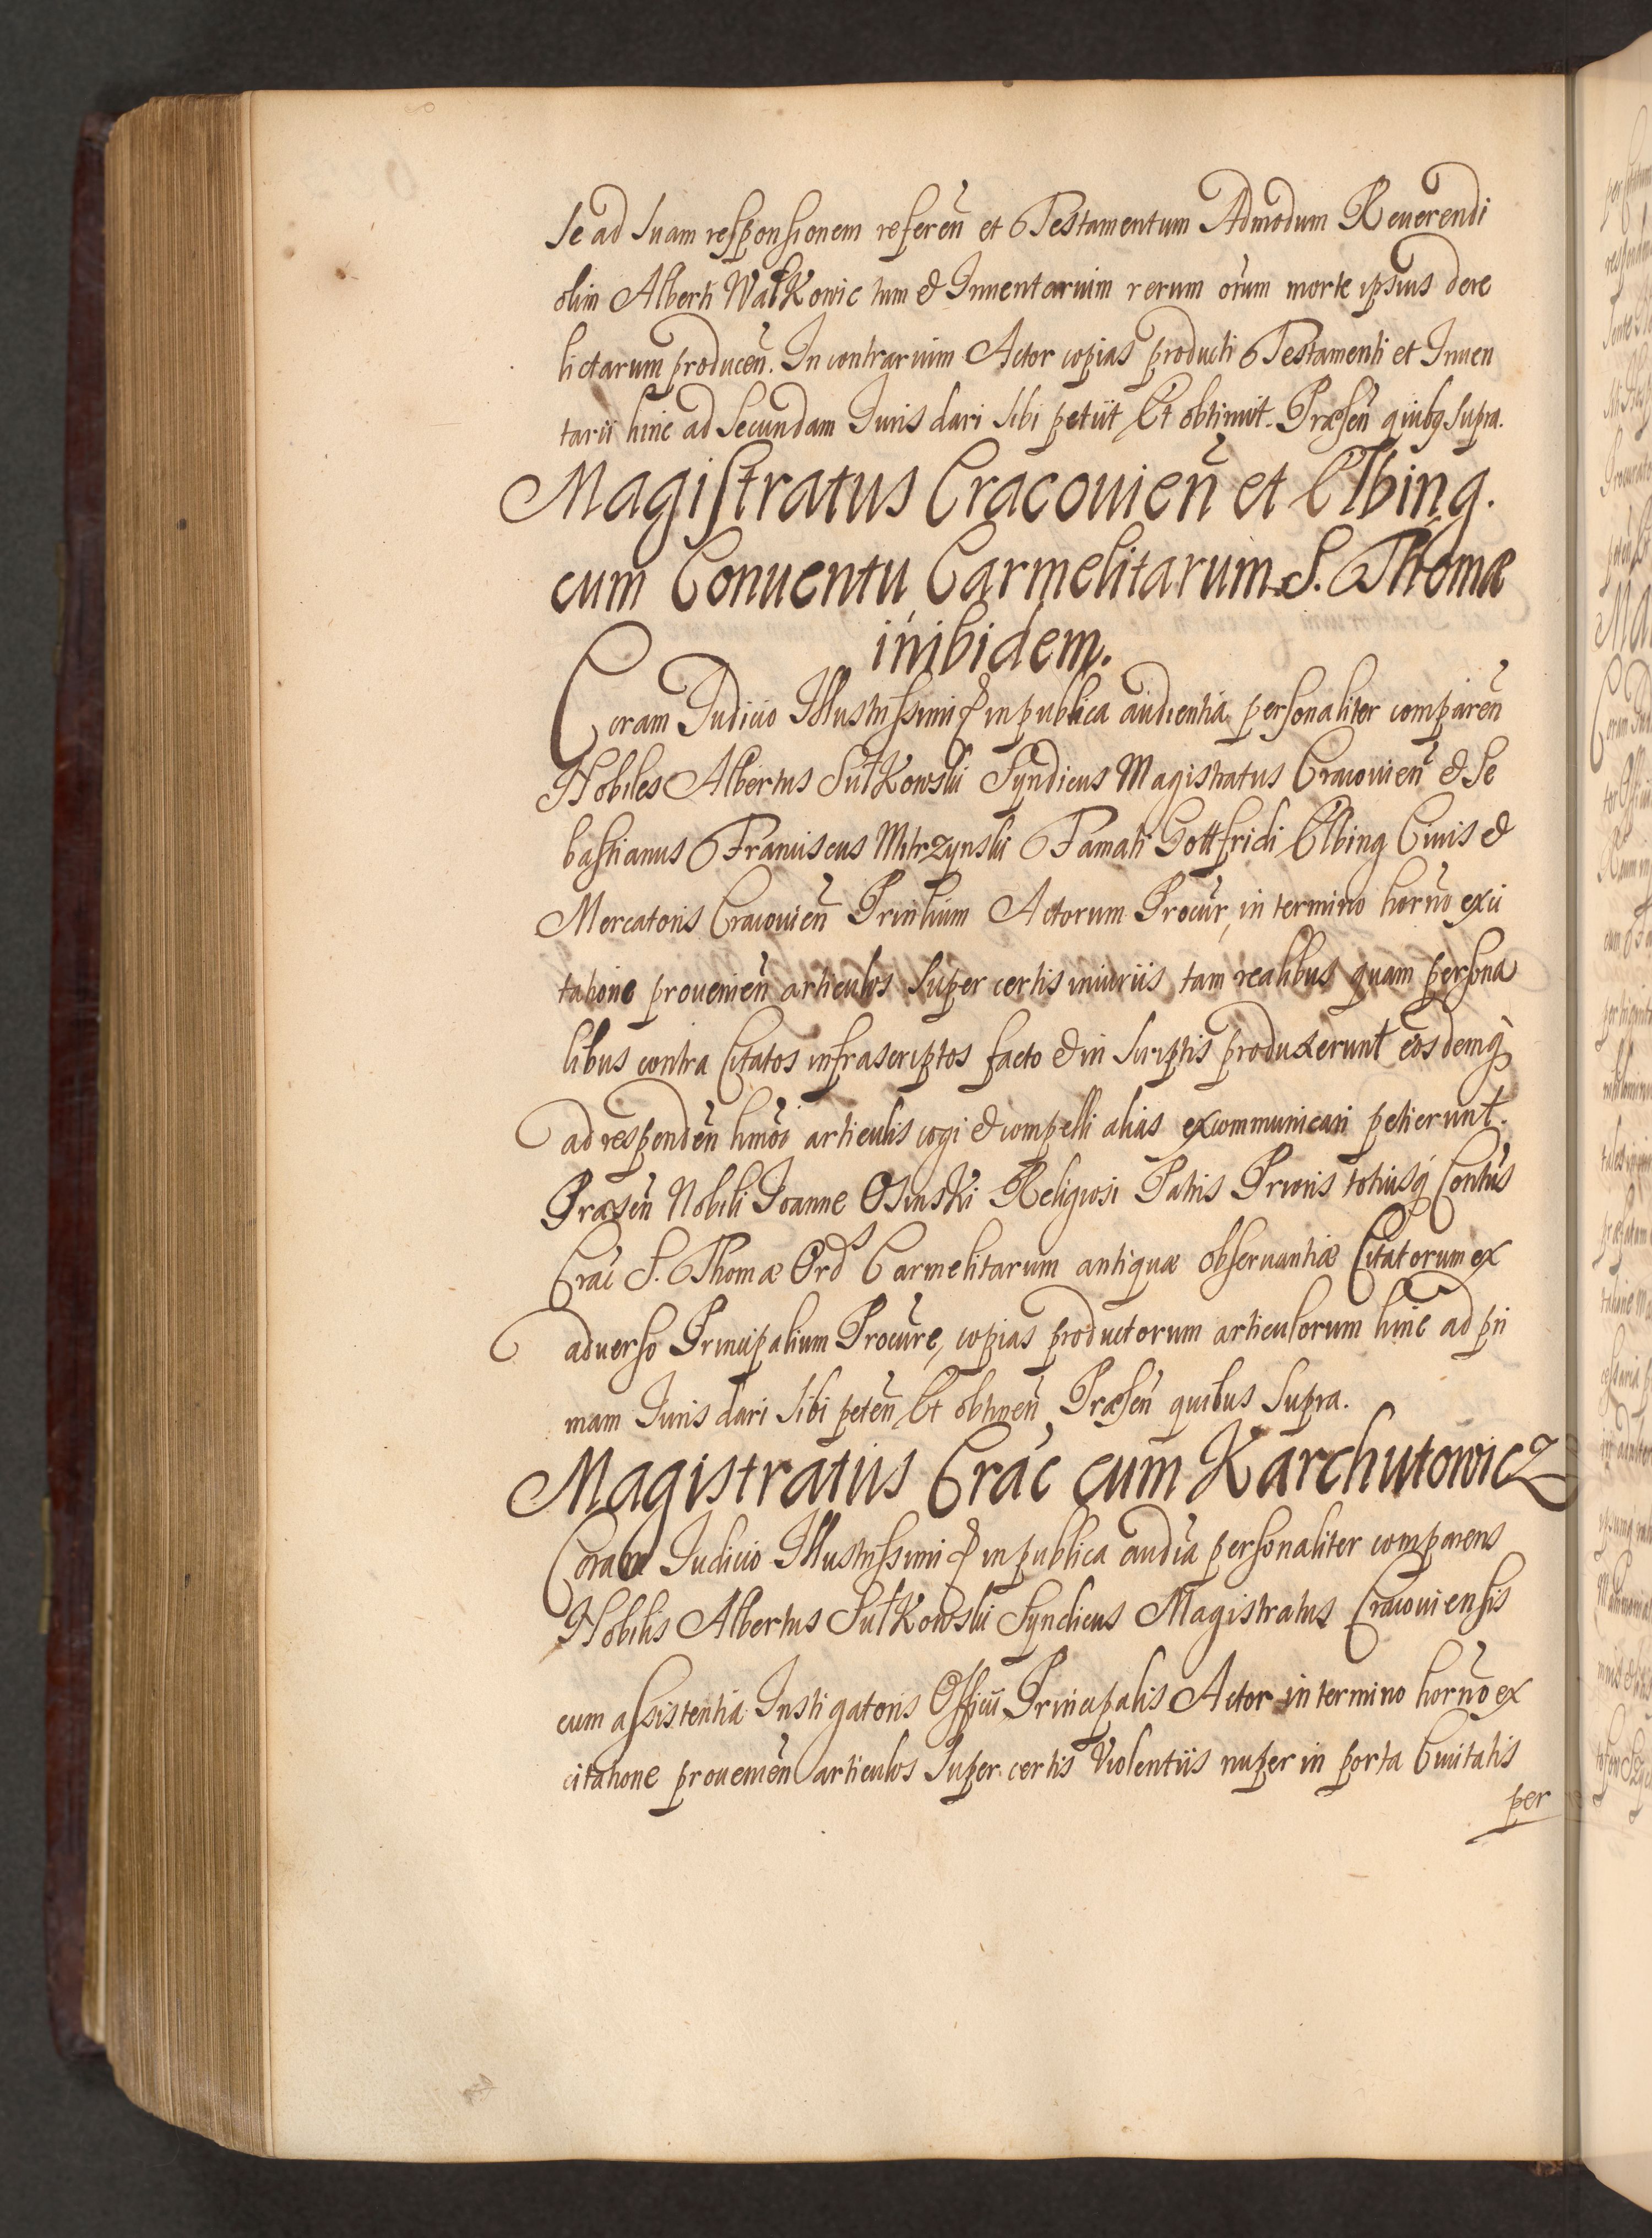 Se ad Suam responsionem referen̄ et Testamentum Admodum Reuerendi
olim Alberti Wałkowic tum & Inuentarium rerum oīum morte ipsius dere
lictarum producen̄. In contrarium Actor copias producti Testamenti et Inuen
tarii hinc ad Secundam Iuris dari sibi petiit Et obtinuit. Præsen̄ quibꝫ supra.
Magistratus Cracouien̄ et Elbing.
cum Conuentu Carmelitarum S. Thomæ
inibidem.
Coram Iudicio Illustrissimi & in publica audientia personaliter comparen̄
Nobiles Albertus Sułkowski Syndicus Magistratus Cracouien̄ & Se
bastianus Franciscus Mitrzynski Famati Gottfridi Elbing Ciuis &
Mercatoris Cracouien̄ Prin̄lium Actorum Procur̄, in termino horno ex ci
tatione prouenien̄ articulos super certis iniuriis tam realibus quam persona
libus contra Citatos infrascriptos facto & in scriptis produxerunt eosdemq̃
ad responden̄ hmōi articulis cogi & compelli alias excommunicari petierunt.
Præsen̄ Nobili Ioanne Osinski Religiosi Patris Prioris totiusq̃ Con̄tus
Crac̄ S. Thomæ Ord̄s Carmelitarum antiquæ obseruantiæ Citatorum ex
aduerso Principalium Procure, copias productorum articulorum hinc ad pri
mam Iuris dari sibi peten̄ Et obtinen̄ Præsen̄ quibus supra.
Magistratus Crac̄ cum Karchutowicz
Coram Iudicio Illustrissimi & in publica audīa personaliter comparens
Nobilis Albertus Sułkowski Syndicus Magistratus Cracouiensis
cum assistentia Instigatoris Officii Principalis Actor in termino horno ex
citatione prouenien̄ articulos super certis Violentiis nuper in porta Ciuitatis
per